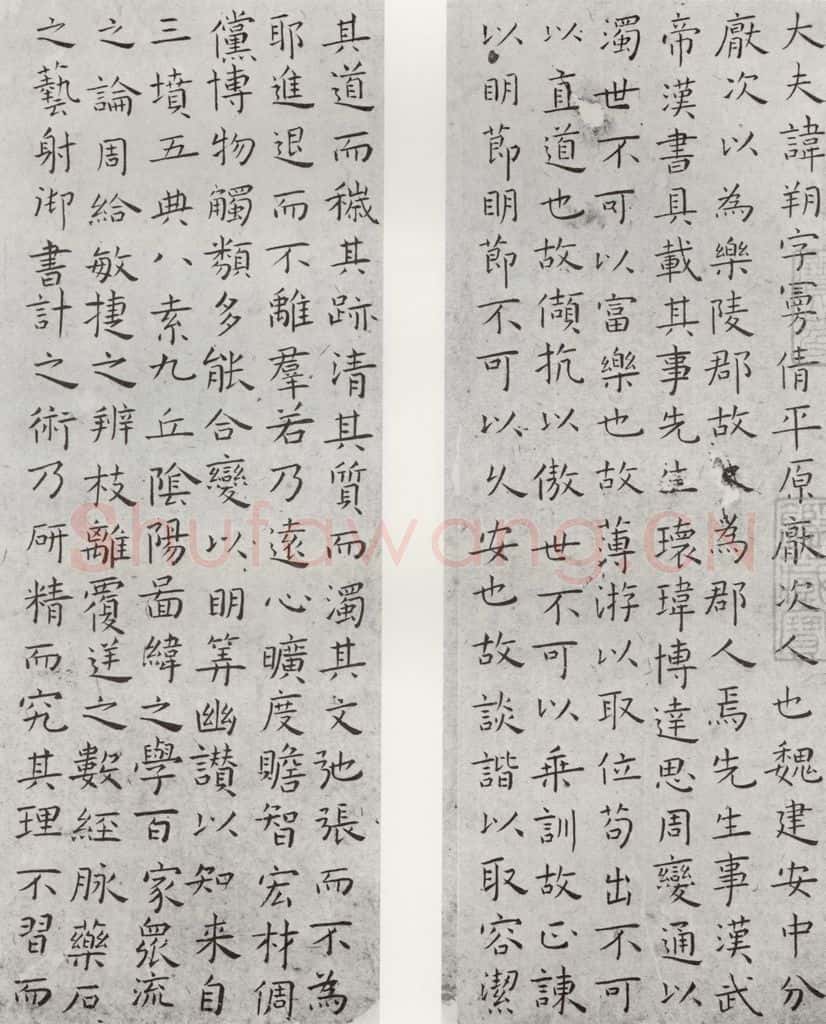 大夫諱朔字曼倩平原厭次人也魏建安中分
厭次以為樂陵郡故又為郡人焉先生事漢武
帝漢書具載其事先生瓌瑋博達思周變通以
濁世不可以富樂也故薄游以取位苟出不可
以直道也故傾抗以傲世不可以垂訓故正諫
以明節明節不可以久安也故談諧以取容潔
其道而穢其跡清其質而濁其文弛張而不為
耶進退而不離羣若乃遠心曠度贍智宏材倜
儻博物觸類多能合變以明筭幽讚以知来自
三墳五典八素九丘陰陽圖緯之學百家衆流
之論周給敏捷之辨枝離覆逆之數經脉藥石
之藝射御書計之術乃研精而究其理不習而
Shufawang.CN